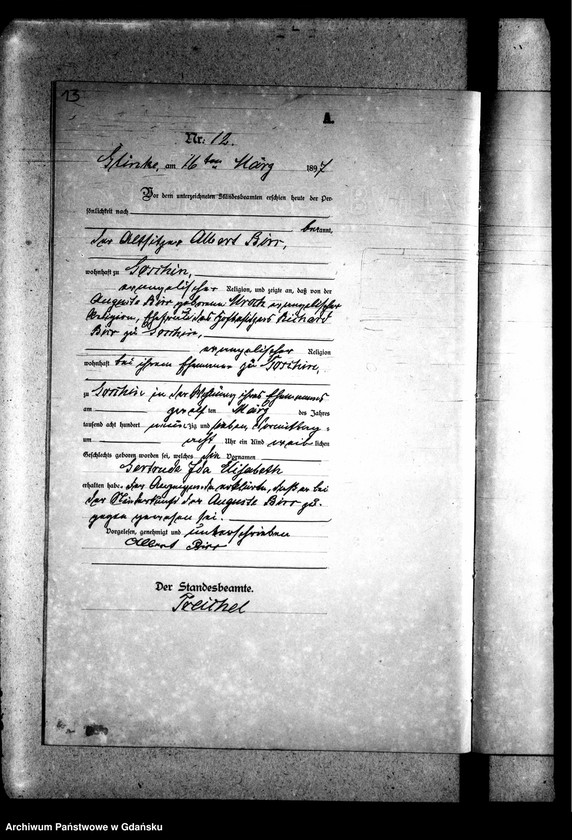 13
A.
Nr. 12.
Glinke, am 16 ten März 1897
Vor dem unterzeichneten Standesbeamten erschien heute der Per-
sönlichkeit nach
bekannt,
der Altsitzer Albert Birr,
wohnhaft zu Goschin,
evangelischer Religion, und zeigte an, daß von der
Auguste Birr geborenen evangelischer
Religion, Ehefrau des Hofbesitzers Richard
Birr zu Goschin,
evangelischer Religion
wohnhaft bei ihrem Ehemanne zu Goschin,
zu Goschin in der Wohnung ihres Ehemannes
am zwölf ten März des Jahres
tausend acht hundert neunzig und sieben, Vormittags
um acht Uhr ein Kind weiblichen
Geschlechts geboren worden sei, welches die Vornamen
Gertrude Ida Elisabeth
erhalten habe. Der Anzeigende erklärte, daß er bei
der Niederkunft der Auguste Birr zu-
gegen gewesen sei.
Vorgelesen, genehmigt und unterschrieben
Albert Birr
Der Standesbeamte.
Treichel
Archiwum Państwowe w Gdańsku